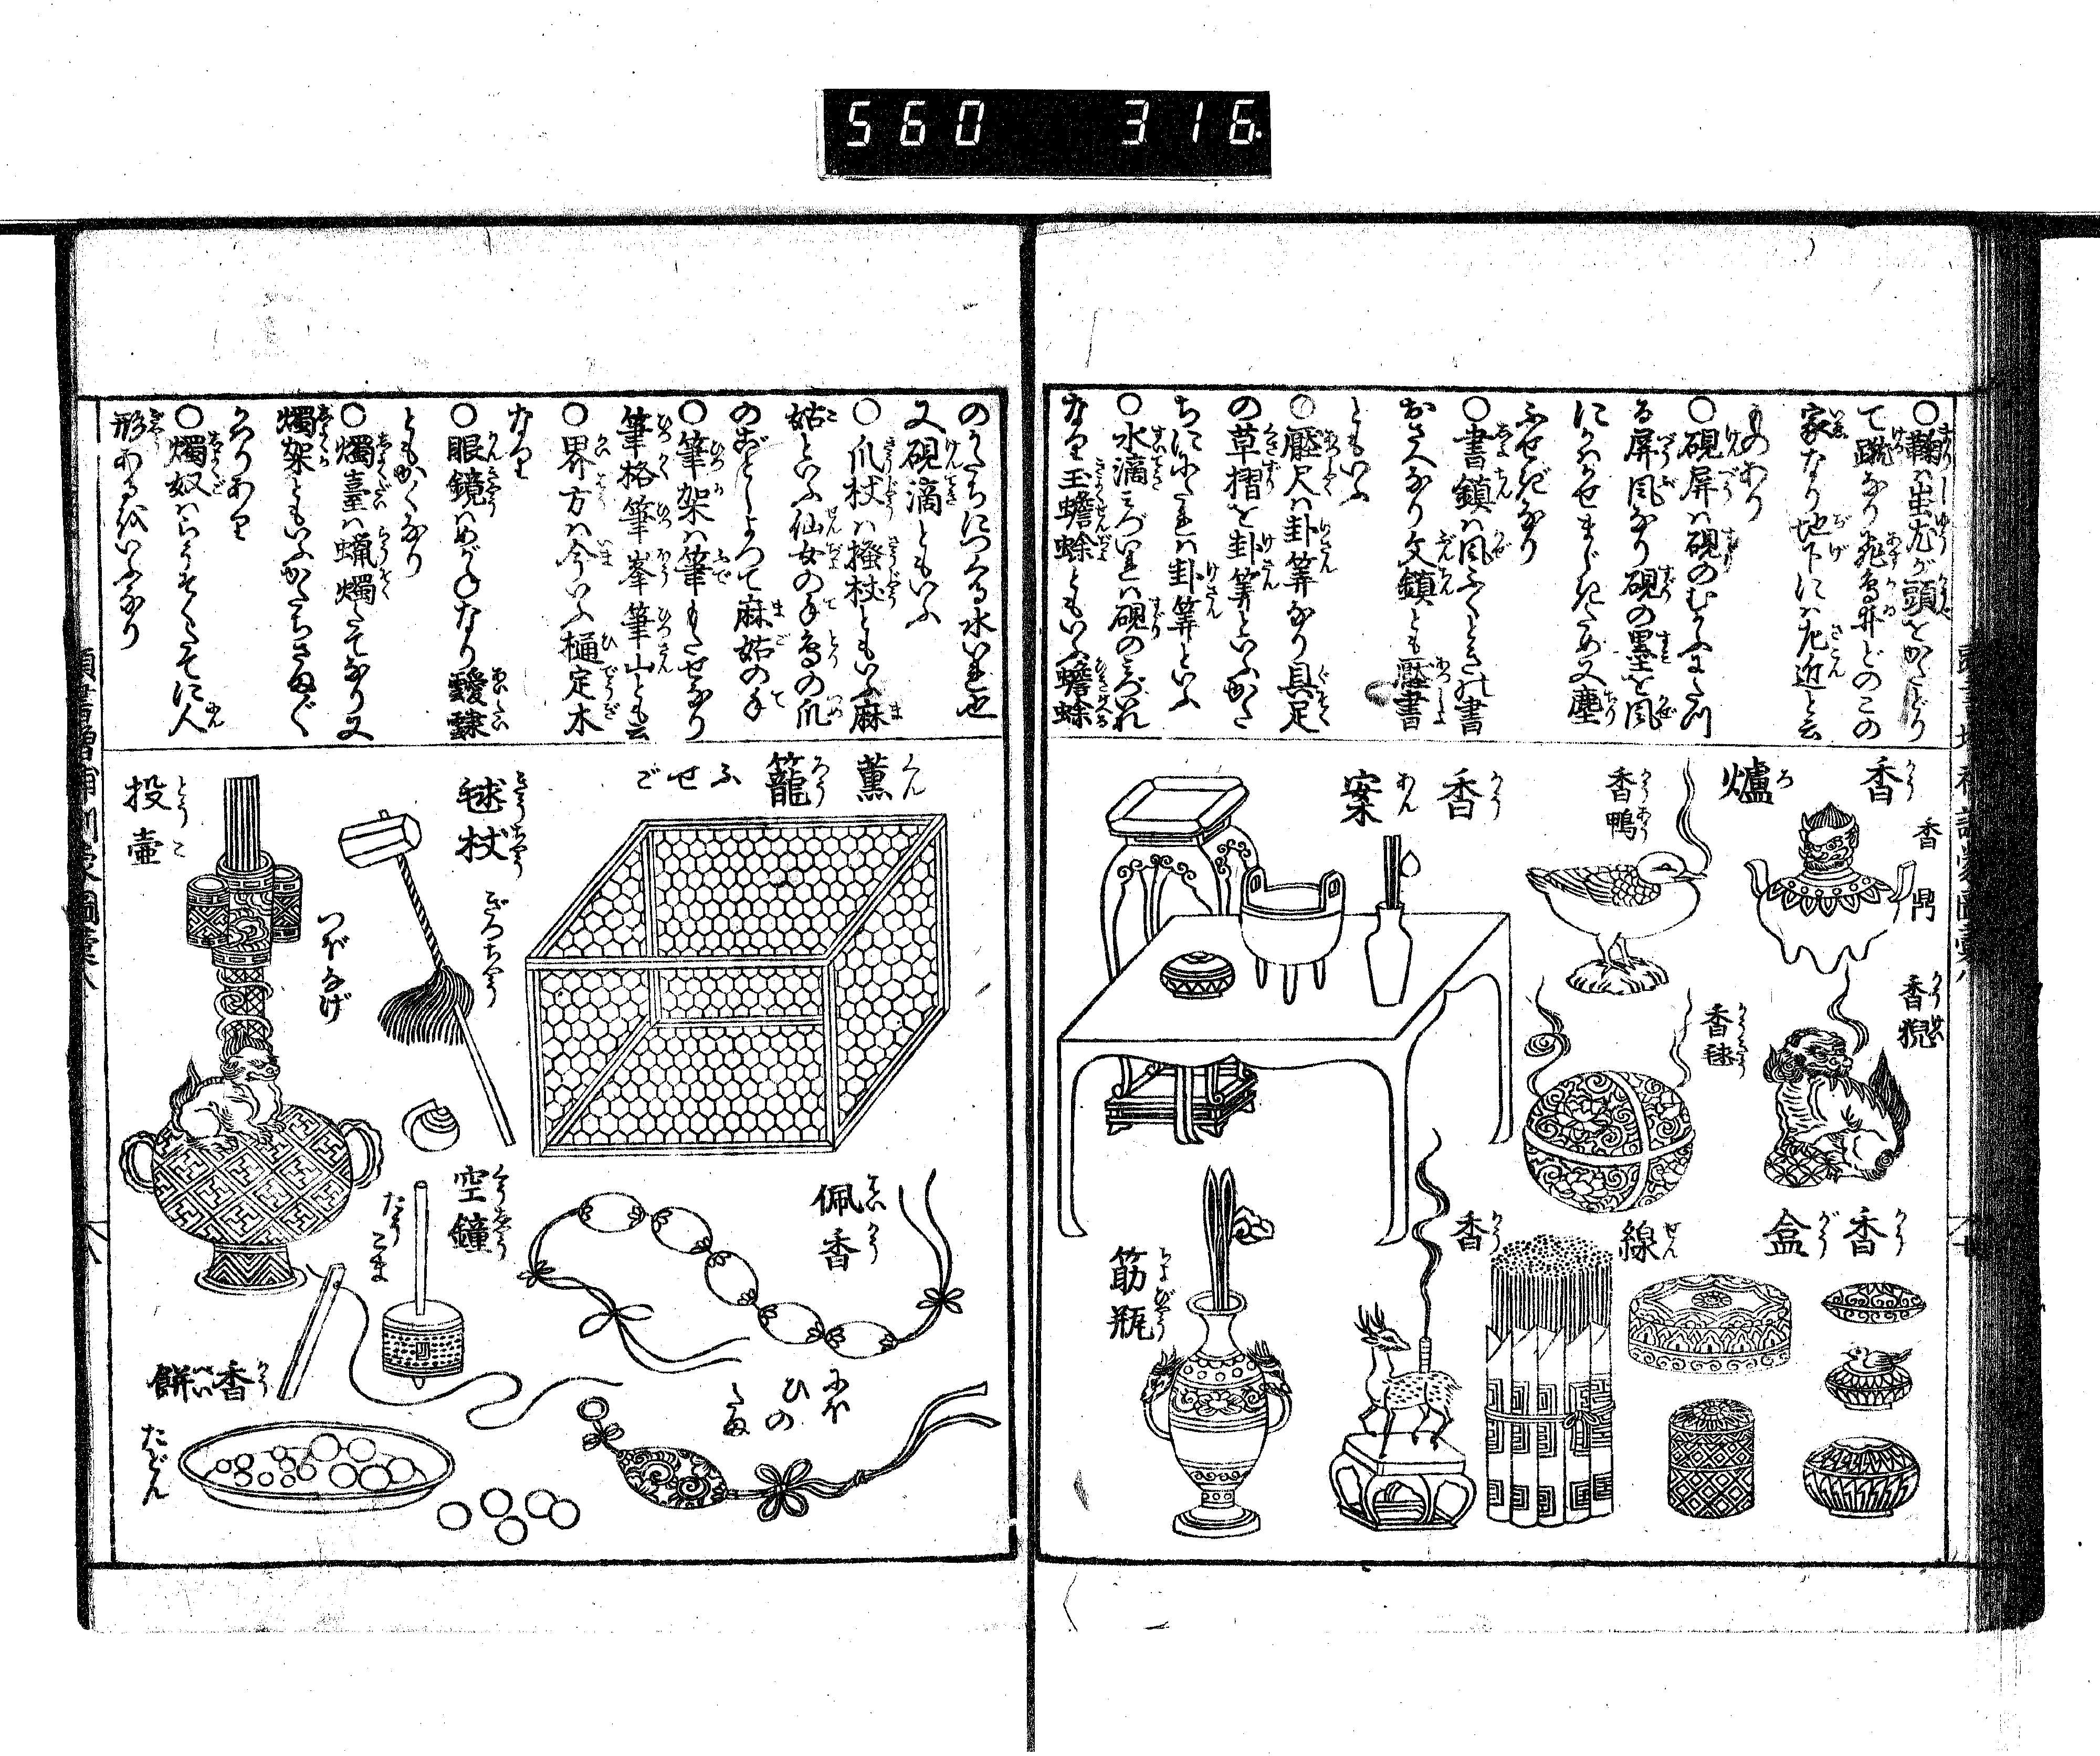 560 316.
○鞠は蚩尤が頭をかたどり
て蹴なり飛鳥井どのこの
家なり地下には左近と云
ものあり
○硯屏は硯のむかふにたつ
る屏風なり硯の墨を風
にかはかせまじきため又塵
ふせぎなり
○書鎮は風ふくときに書
おさへなり文鎮とも壓書
ともいふ
○壓尺は卦筭なり具足
の草摺を卦筭といふかた
ちに似たれは卦筭といふ
○水滴みづいれは硯のみづいれ
なり玉蟾蜍ともいふ蟾蜍
のかたちにつくる水いれ也
又硯滴ともいふ
○爪杖は搔杖ともいふ麻
姑といふ仙女の手鳥の爪
のごとしよつて麻姑の手
○筆架は筆もたせなり
筆格筆峯筆山とも云
○界方は今いふ樋定木
なり
○眼鏡はめがねなり靉靆
ともかくなり
○燭臺は蝋燭たてなり又
燭架ともいふかたちさまざま
かわりあり
○燭奴はらうそくたてに人
形あるをいふなり
香爐
香鼎
香鴨
香猊
香毬
香案
香盒
線香
筯瓶
薰籠 ふせご
毬杖 ぎつちやう
投壷 つぼなげ
佩香 にほひのたま
空鐘 たうごま
香餅 たどん